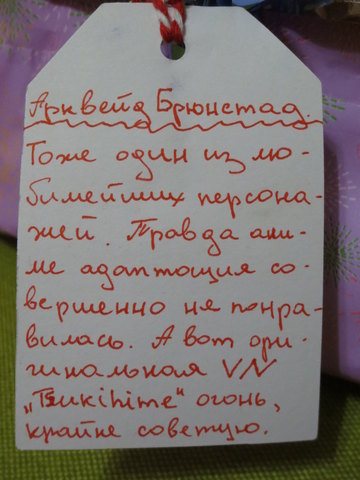 Арквейд Брюнстад
Тоже один из лю-
бимейших персона-
жей. Правда ани-
ме адаптация со-
вершенно не понра-
вилась. А вот ори-
гинальная VN
„Tsukihime“ огонь,
крайне советую.